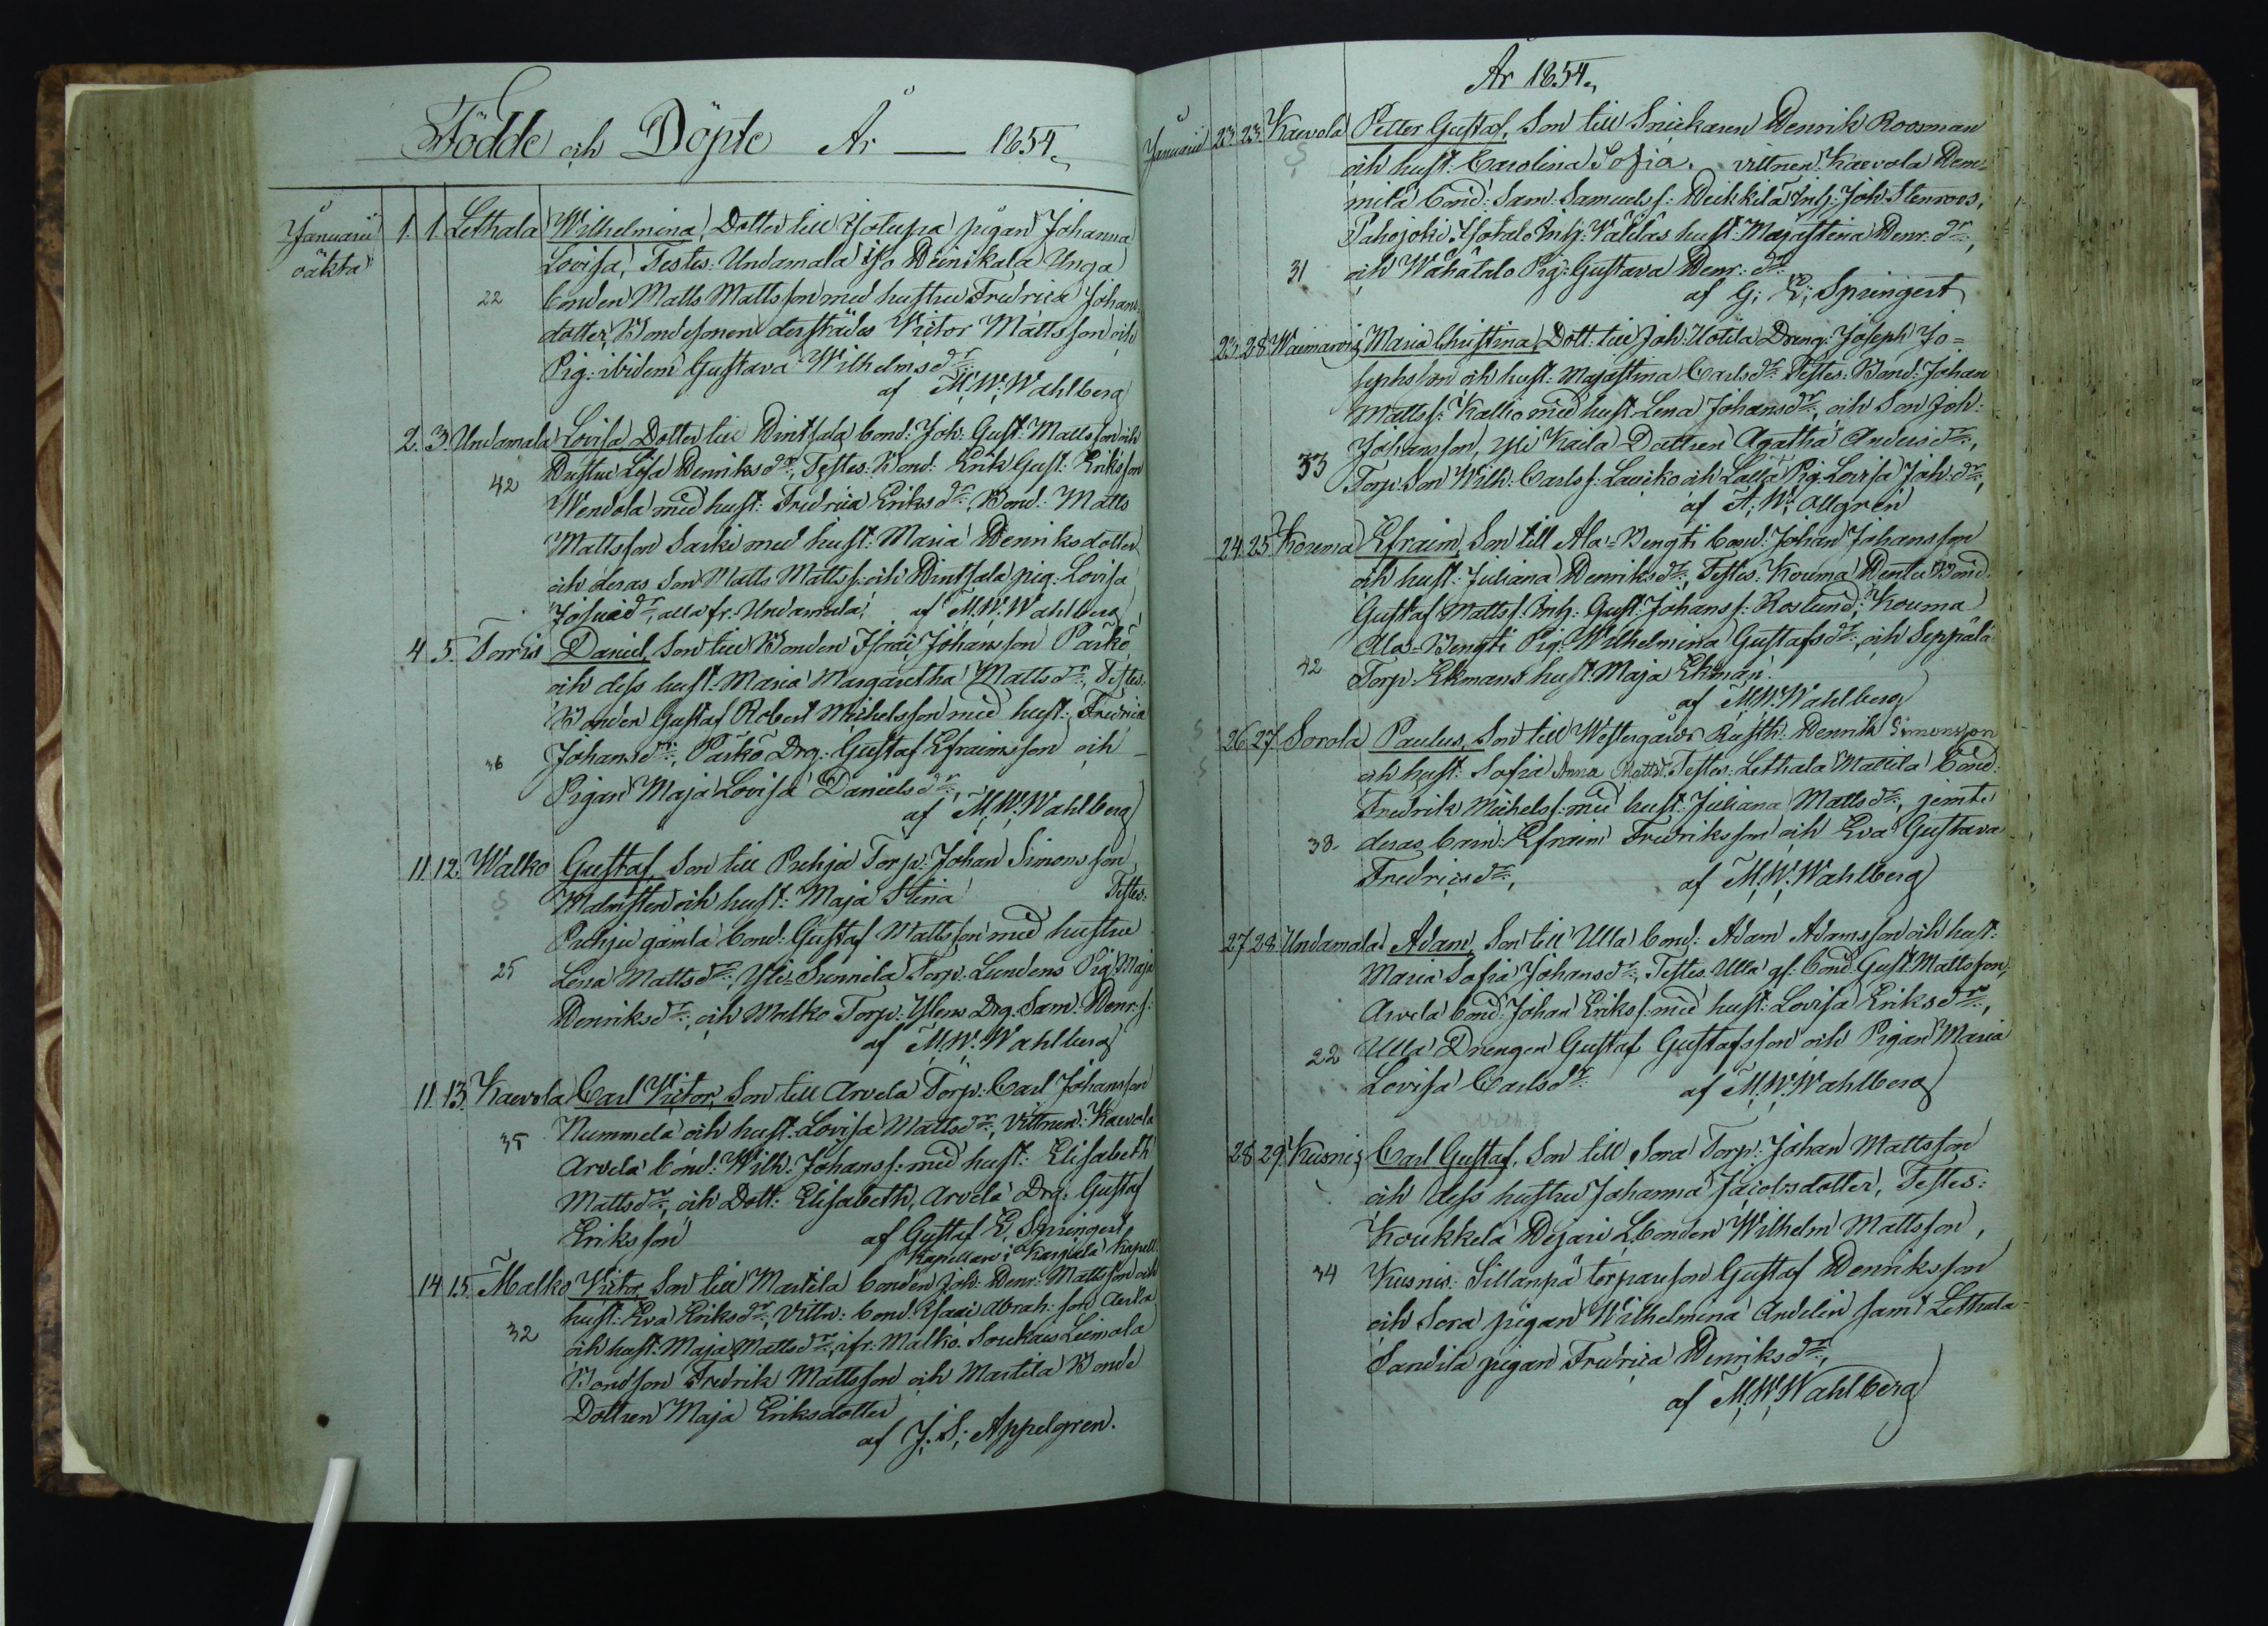 Födde och Döpte År — 1854.
Januarii 1. 1. Lethala Wilhelmina, Dotter till Isotupa pigan Johanna
oäkta Lovisa, Testes: Undamala Iso Heinikala Unga
22 bonden Matts Mattsson med hustru Fredrica Johans
dotter, Bondesonen derstädes Victor Mattsson och
Pig: ibidem Gustava Wilhelmsdr:
af M. W. Wahlberg
2. 3. Undamala Lovisa, Dotter till Hintsala bond: Joh: Gust: Mattsson och
42 Hustru Lisa Henriksdr:, Testes: Bond: Erik Gust: Eriksson
Wendola med hust: Fredrica Eriksdr:, Bond: Matts
Mattsson Sarki med hust: Maria Henriksdotter
och deras Son Matts Mattss: och Hintsala pig: Lovisa
Josuædr:, alla fr. Undamala. af M. W. Wahlberg
4. 5. Torris Daniel, Son till Bonden Israel Johansson Parko
och dess hust: Maria Margaretha Mattsdr:, Testes:
Bonden Gustaf Robert Michelsson med hust: Fredrica
36 Johansdr:, Parko Drg: Gustaf Efraimsson och
Pigan Maja Lovisa Danielsdr:,
af M. W. Wahlberg
11. 12. Walko Gustaf, Son till Prehja Torp: Johan Simonsson
Malmsten och hust: Maja Stina Testes:
Prehju gamla bond: Gustaf Mattsson med hustru
25 Lena Mattsdr:, Yli-Sunnila Torp: Lundens Pig: Maja
Henriksdr:, och Malko Torp: Ylens Drg. Sam: Henr: s:
af M. W. Wahlberg
11. 13. Kaerola Carl Victor, Son till Arvela Torp: Carl Johansson
35 Nummela och hust: Lovisa Mattsdr:, Vittnen: Kaerola
Arvela bond: Wilh: Johanss: med hust: Elisabeth
Mattsdr:, och Dott: Elisabeth, Arvela Drg: Gustaf
Eriksson af Gustaf E. Springert
Kapellan i Karjala Kapell
14. 15. Malko Victor, Son till Martila bonden Joh: Henr: Mattsson och
hust: Eva Eriksdr:, Vittn: bond: Isaac Abrah: son
32 och hust: Maja Mattsdr:, ifr: Malko. Soukais Liimola
Bondson Fredrik Mattsson och Martila Bonde
Dottren Maja Eriksdotter
af J. S. Appelgren.
År 1854.
Januarii 23. 23. Kaerola Petter Gustaf, Son till Snickaren Henrik Roosman
och hust: Carolina Sofia. vittnen: Kaerola Hem=
mila bond: Sam: Samuelss: Heikkilä Inh: Joh: Stenroos,
Pahojoki Isotalo Inh: Wälilas hust: Majastina Henr: dr:,
31 och Wähätalo Pig: Gustava Henr: dr:
af G. E. Springert
23. 28. Waimaro Maria Christina, Dott: till Joh: Uotila Dreng: Joseph Jo=
sephsson och hust: Majastina Carlsdr: Testes: Bond: Johan
Mattss: Kallio med hust: Lena Johansdr:, och Son Joh:
Johansson, Yli Kaila Dottren Agatha Andersdr:,
33 Torp: Son Wilh: Carlss: Lauiko och Lalla Pig: Lovisa Joh: dr:,
af A. W. Allgren
24. 25. Korema Efraim, Son till Ala-Bengti bond: Johan Johansson
och hust: Juliana Henriksdr:, Testes: Kouma Hentu Bond:
Gustaf Mattss: Inh: Gust: Johanss: Roslund, Kouma
Ala-Bengti Pig: Wilhelmina Gustafsdr:, och Seppälä
42 Torp: Ekmans hust: Maja Ekman.
af M. W. Wahlberg
26. 27. Sorola Paulus, Son till Westergårds Rusth: Henrik Simonsson
och hust: Sofia Anna Mattsd. Testes: Lethala Mattila bond:
Fredrik Michelss: med hust: Juliana Mattsdr:, jemte
38 deras barn: Efraim Fredriksson och Eva Gustava
Fredricsdr:, af M. W. Wahlberg
27. 28. Undamala Adam, Son till Ulla bond: Adam Adamsson och hust:
Maria Sofia Johansdr:, Testes: Ulla gl: bond: Gust: Mattsson,
Arvela bond: Johan Erikss: med hust: Lovisa Eriksdr:,
22 Ulla Drengen Gustaf Gustafsson och Pigan Maria
Lovisa Carlsdr: af M. W. Wahlberg
Wilh:
28. 29. Kusnis Carl Gustaf, Son till Sora Torp: Johan Mattsson
och dess hustru Johanna Jacobsdotter, Testes:
Koukkela Hejari Lbonden Wilhelm Mattsson,
34 Kusnis Sillanpä torpareson Gustaf Henriksson
och Sora pigan Wilhelmina Andelin samt Lethala
Sandila pigan Fredrica Henriksdr:,
af M. W. Wahlberg